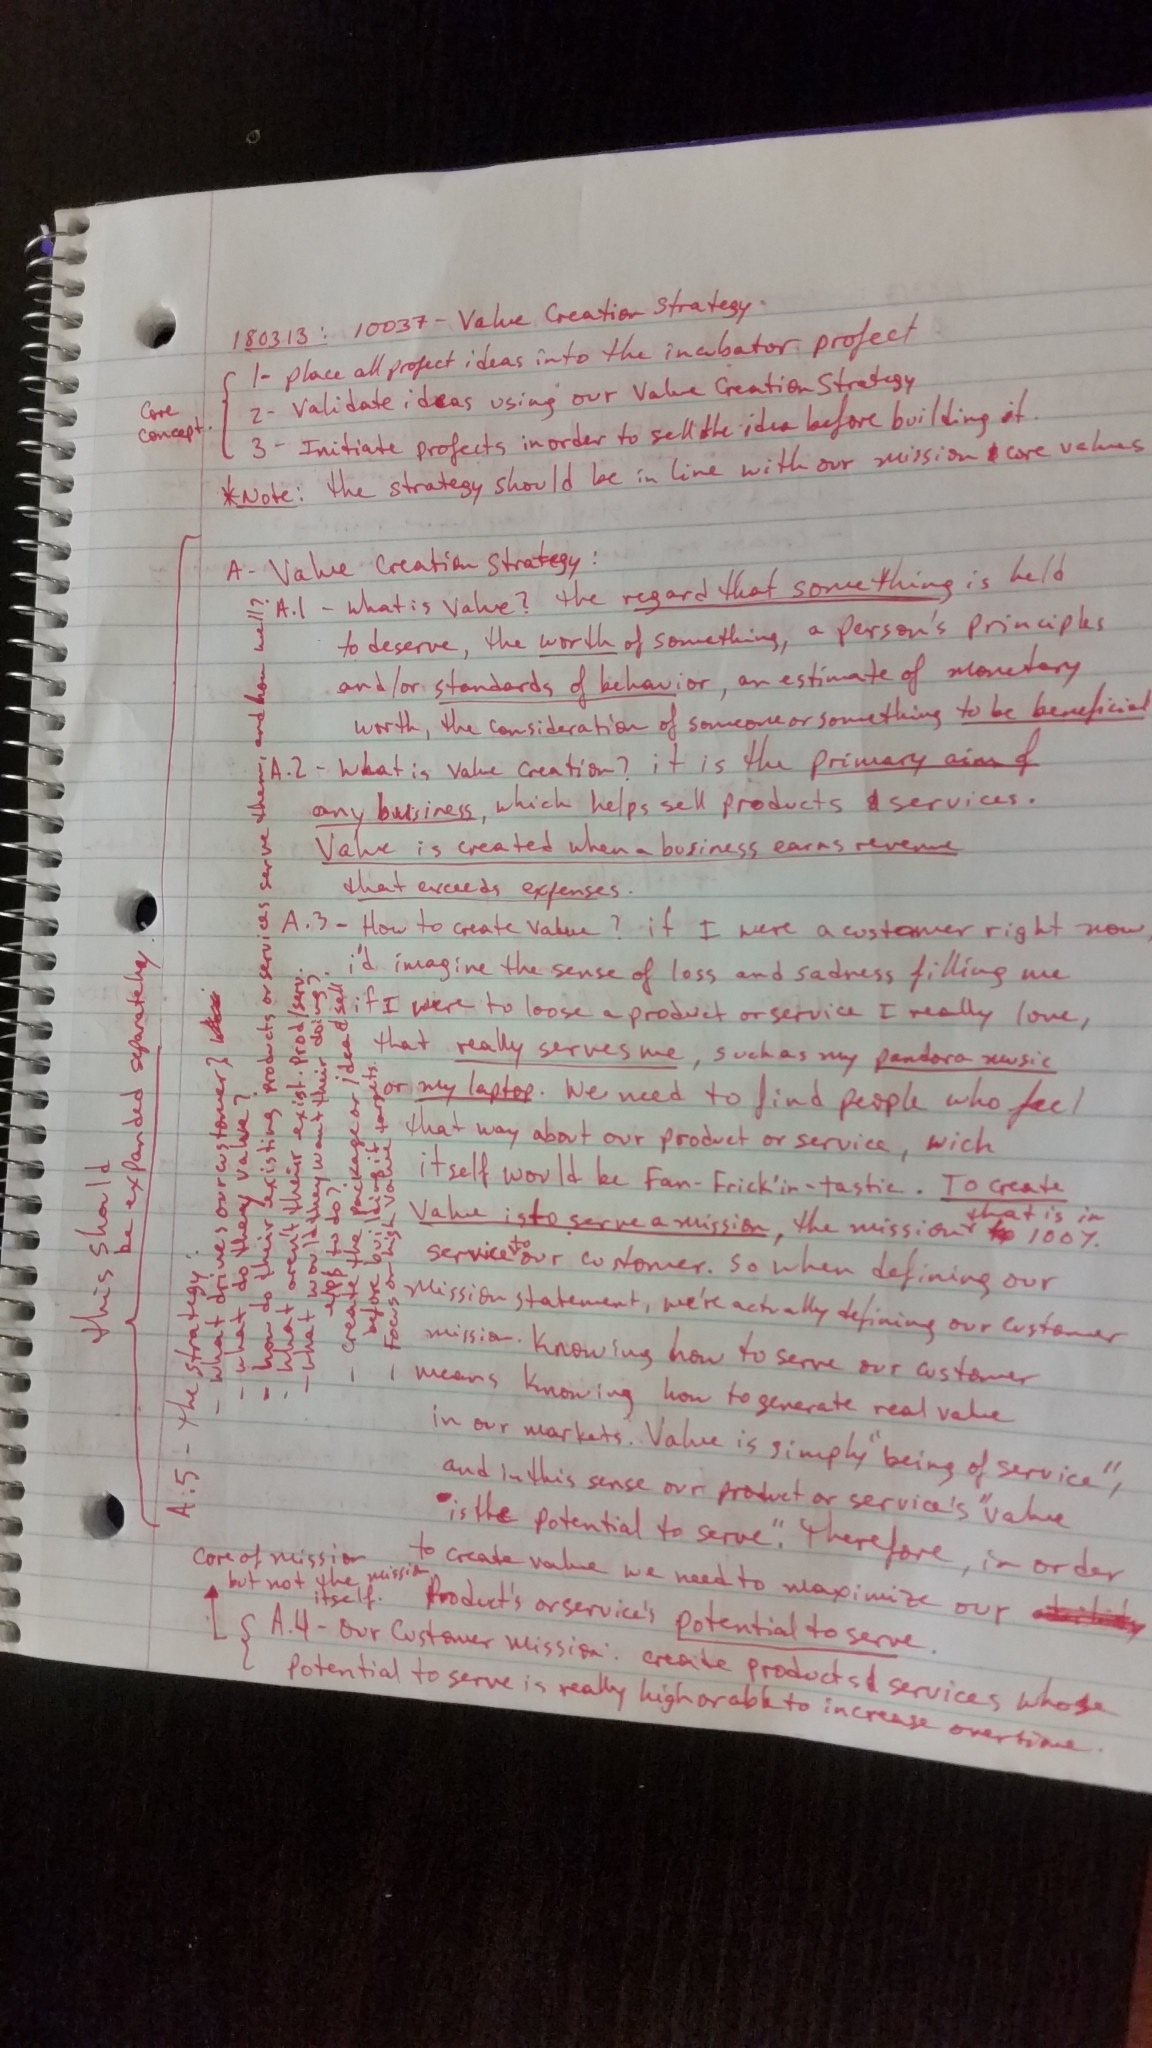 180313: 10037 - Value Creation Strategy.
Core
concept.
1- place all project ideas into the incubator project
2- Validate ideas using our Value Creation Strategy
3- Initiate projects in order to sell the idea before building it.
*Note: the strategy should be in line with our mission & core values
A- Value Creation Strategy:
A.1 - What is Value? the regard that something is held
to deserve, the worth of something, a person's principles
and/or standards of behavior, an estimate of monetary
worth, the consideration of someone or something to be beneficial
A.2 - What is Value Creation? it is the primary aim of
any business, which helps sell products & services.
Value is created when a business earns revenue
that exceeds expenses.
A.3 - How to create Value? if I were a customer right now,
i'd imagine the sense of loss and sadness filling me
if I were to loose a product or service I really love,
that really serves me, such as my pandora music
or my laptop. We need to find people who feel
that way about our product or service, wich
itself would be Fan-Frick'in-tastic. To create
Value is to serve a mission, the mission that is in 100%
service to our customer. So when defining our
Mission statement, we're actually defining our customer
mission. Knowing how to serve our customer
means knowing how to generate real value
in our markets. Value is simply "being of service",
and in this sense our product or service's "value
is the potential to serve". Therefore, in order
to create value we need to maximize our
Product's or service's potential to serve.
Core of mission
but not the mission
itself.
A.4 - Our Customer Mission: create products & services whose
potential to serve is really high or able to increase overtime.
This should
be expanded separately.
A.5 - The strategy:
- what drives our customer?
- what do they value?
- how do their existing products or services serve them, and how well?
- What aren't their exist. prod/serv.
- what would they want their doing?
to do?
- create the package or idea & sell
before building it
- Focus on high value targets.